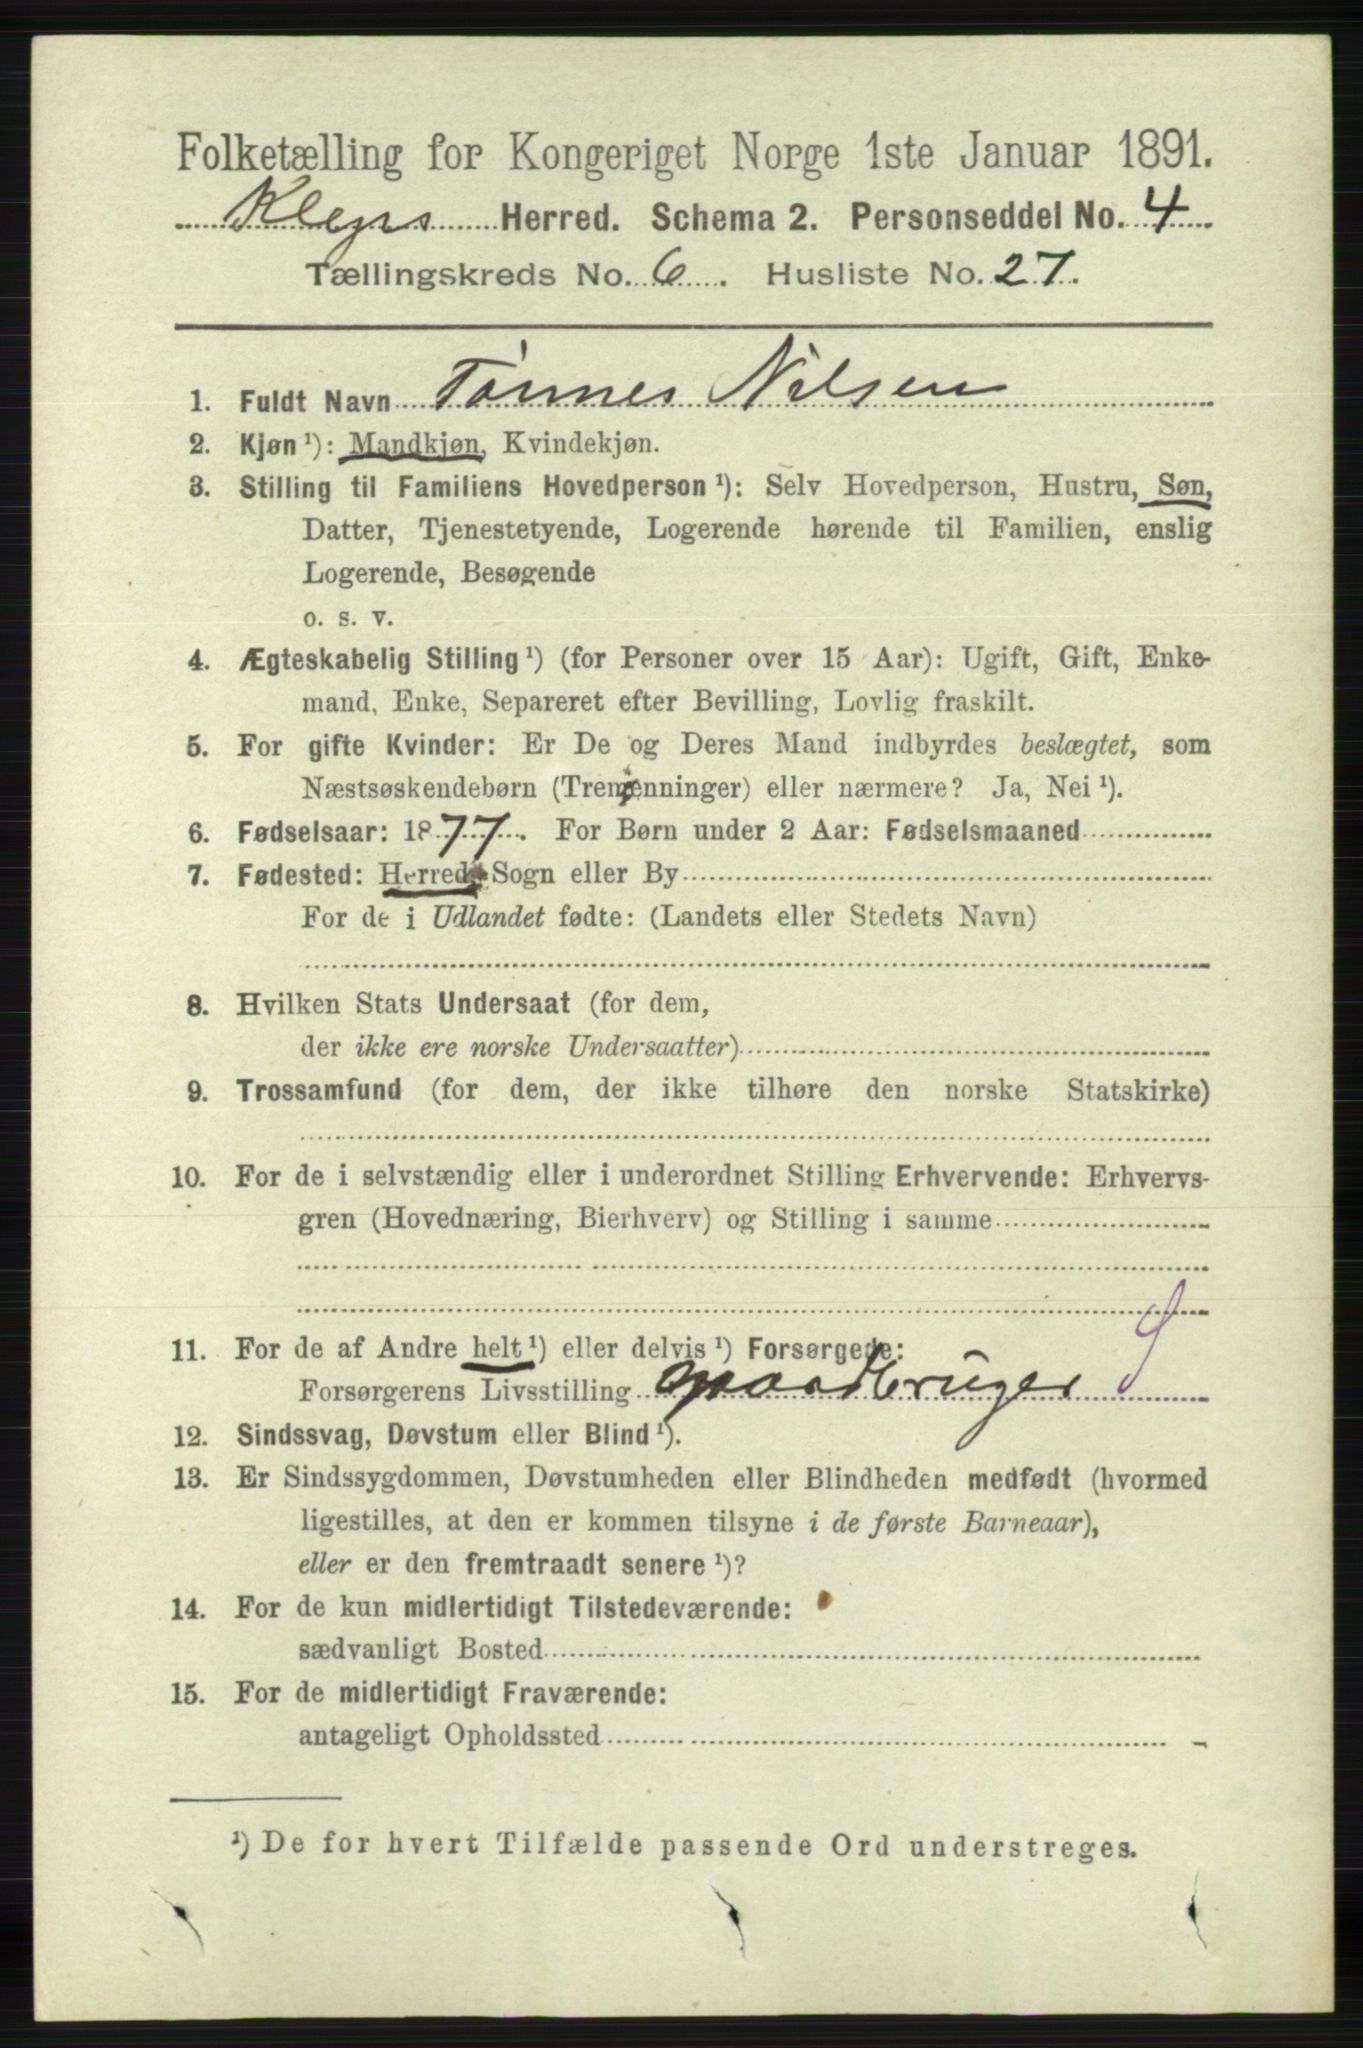 Folketælling for Kongeriget Norge 1ste Januar 1891.
Kleps Herred. Schema 2. Personseddel No. 4
Tællingskreds No. 6. Husliste No. 27.
1. Fuldt Navn Tønnes Nilsen
2. Kjøn ¹): Mandkjøn, Kvindekjøn.
3. Stilling til Familiens Hovedperson ¹): Selv Hovedperson, Hustru, Søn,
Datter, Tjenestetyende, Logerende hørende til Familien, enslig
Logerende, Besøgende
o. s. v.
4. Ægteskabelig Stilling ¹) (for Personer over 15 Aar): Ugift, Gift, Enke-
mand, Enke, Separeret efter Bevilling, Lovlig fraskilt.
5. For gifte Kvinder: Er De og Deres Mand indbyrdes beslægtet, som
Næstsøskendebørn (Tremenninger) eller nærmere? Ja, Nei ¹).
6. Fødselsaar: 1877. For Børn under 2 Aar: Fødselsmaaned
7. Fødested: Herred, Sogn eller By
For de i Udlandet fødte: (Landets eller Stedets Navn)
8. Hvilken Stats Undersaat (for dem,
der ikke ere norske Undersaatter)
9. Trossamfund (for dem, der ikke tilhøre den norske Statskirke)
10. For de i selvstændig eller i underordnet Stilling Erhvervende: Erhvervs-
gren (Hovednæring, Bierhverv) og Stilling i samme
11. For de af Andre helt ¹) eller delvis ¹) Forsørgede:
Forsørgerens Livsstilling Gaardbruger
12. Sindssvag, Døvstum eller Blind ¹).
13. Er Sindssygdommen, Døvstumheden eller Blindheden medfødt (hvormed
ligestilles, at den er kommen tilsyne i de første Barneaar),
eller er den fremtraadt senere ¹)?
14. For de kun midlertidigt Tilstedeværende:
sædvanligt Bosted
15. For de midlertidigt Fraværende:
antageligt Opholdssted
¹) De for hvert Tilfælde passende Ord understreges.